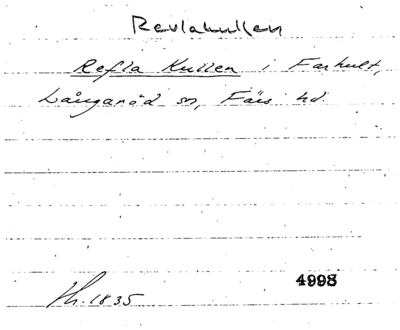 Revlakullen
Refla Kullen i Farhult,
Långaröd sn, Färs hd.
Lh. 1835
4998